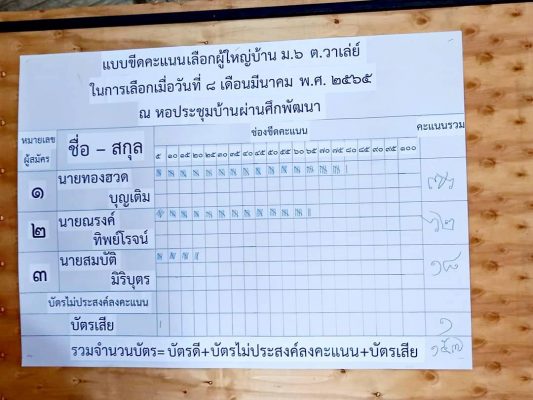 แบบขีดคะแนนเลือกผู้ใหญ่บ้าน ม.๖ ต.วาเล่ย์
ในการเลือกเมื่อวันที่ ๘ เดือนมีนาคม พ.ศ. ๒๕๖๕
ณ หอประชุมบ้านผ่านศึกพัฒนา
หมายเลข ผู้สมัคร ชื่อ - สกุล ช่องขีดคะแนน คะแนนรวม
๕ ๑๐ ๑๕ ๒๐ ๒๕ ๓๐ ๓๕ ๔๐ ๔๕ ๕๐ ๕๕ ๖๐ ๖๕ ๗๐ ๗๕ ๘๐ ๘๕ ๙๐ ๙๕ ๑๐๐
๑ นายทองฮวด
บุญเติม
๒ นายณรงค์ ๖๒
ทิพย์โรจน์
๓ นายสมบัติ ๑๘
มิริบุตร
บัตรไม่ประสงค์ลงคะแนน
บัตรเสีย ๑
รวมจำนวนบัตร= บัตรดี+บัตรไม่ประสงค์ลงคะแนน+บัตรเสีย ๑๕๗